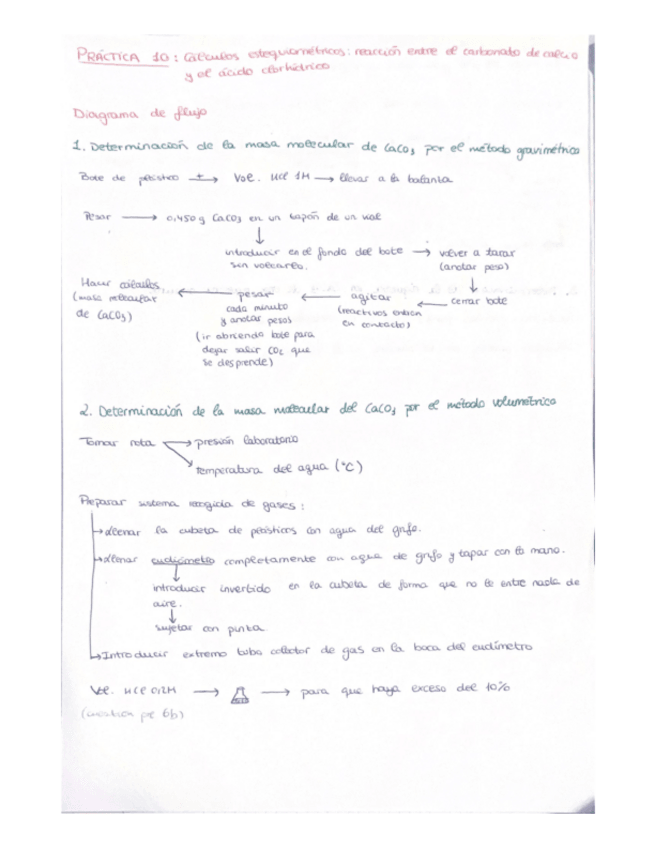 PRÁCTICA 10: Cálculos estequiométricos: reacción entre el carbonato de calcio
y el ácido clorhídrico
Diagrama de flujo
1. Determinación de la masa molecular de CaCO3 por el método gravimétrico
Bote de plástico + Vol. HCl 1M llevar a la balanza
Pesar 0,450g CaCO3 en un tapón de un vial
introducir en el fondo del bote volver a tarar
sin volcarlo. (anotar peso)
Hacer cálculos pesar agitar cerrar bote
(masa molecular cada minuto (reactivos entren
de CaCO3) y anotar pesos en contacto)
(ir abriendo bote para
dejar salir CO2 que
se desprende)
2. Determinación de la masa molecular del CaCO3 por el método volumétrico
Tomar nota presión laboratorio
temperatura del agua (°C)
Preparar sistema recogida de gases:
llenar la cubeta de plásticos con agua del grifo.
llenar eudiómetro completamente con agua de grifo y tapar con la mano.
introducir invertido en la cubeta de forma que no le entre nada de
aire.
sujetar con pinza
Introducir extremo tubo colector de gas en la boca del eudímetro
Vol. HCl 0,12M para que haya exceso del 10%
(cuestión pe 6b)